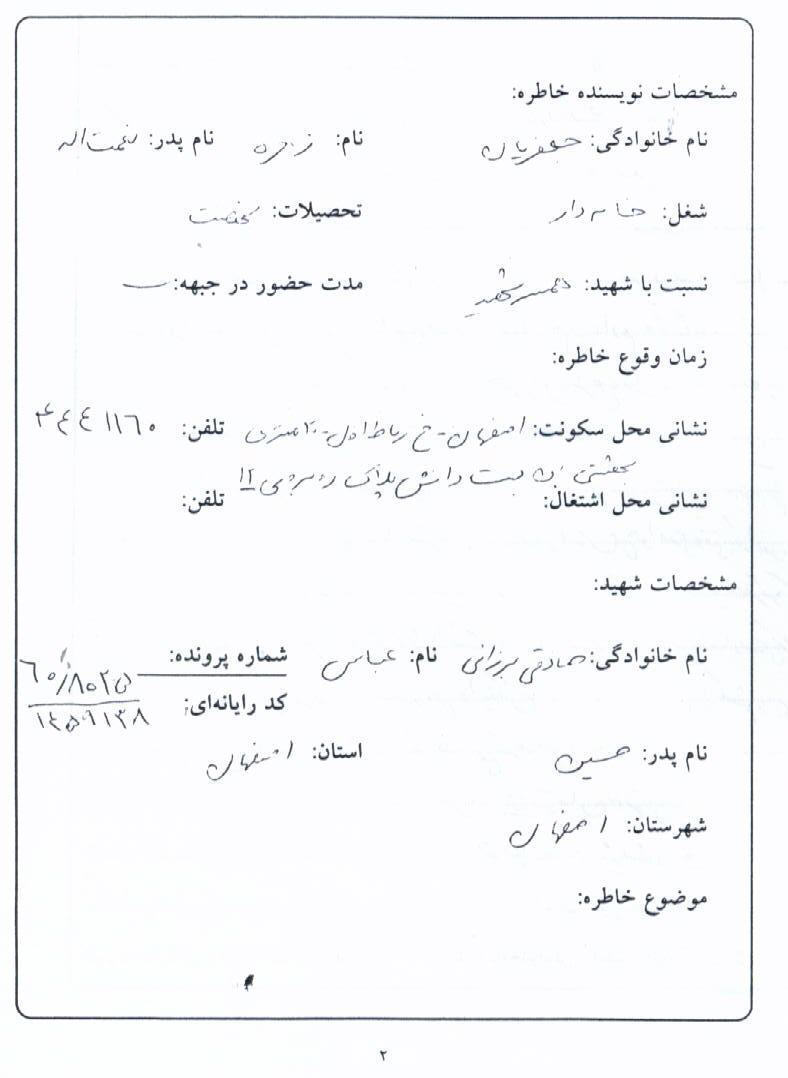 مشخصات نویسنده خاطره:
نام خانوادگی: جعفریان نام: زهره نام پدر: نعمت اله
شغل: خانه دار تحصیلات:
نسبت با شهید: همسر شهید مدت حضور در جبهه: ــ
زمان وقوع خاطره:
نشانی محل سکونت: اصفهان - خ رباط اول - ۲۰ متری تلفن: ۴۴۴۱۱۶۰
بهشتی بن بست دانش پلاک روبروی ۱۲
نشانی محل اشتغال: تلفن:
مشخصات شهید:
نام خانوادگی: صادقی برزانی نام: عباس شماره پرونده:
کد رایانه‌ای: ۱۴۵۹۱۳۸
نام پدر: حسین استان: اصفهان
شهرستان: اصفهان
موضوع خاطره:
۲